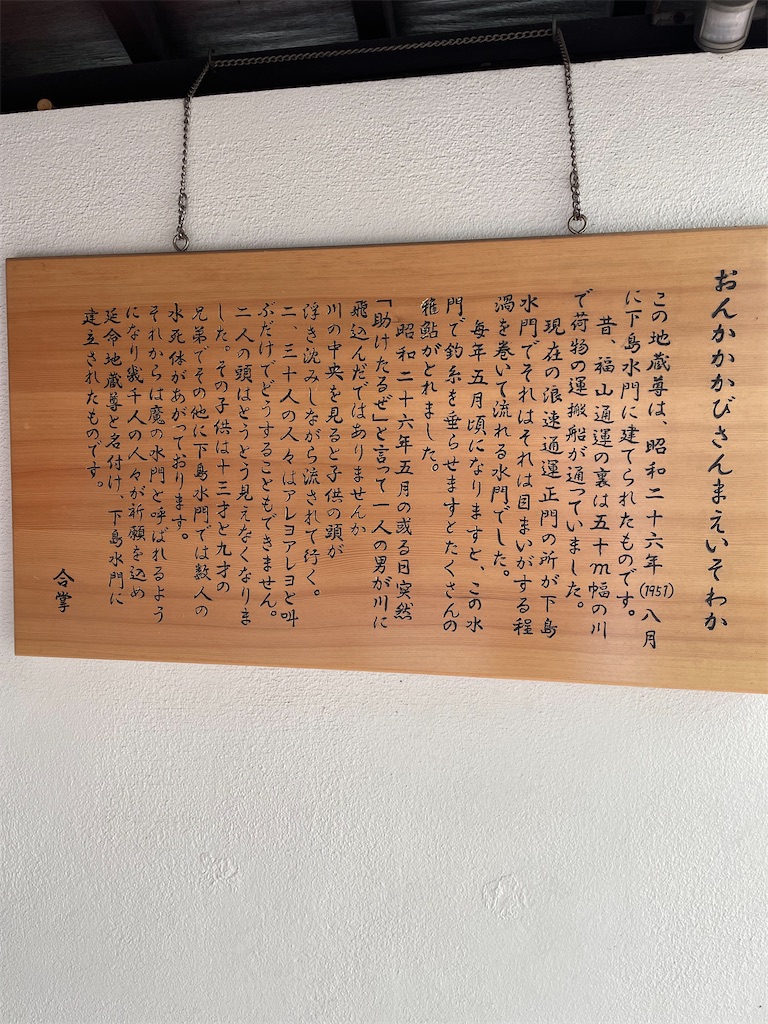 おんかかかびさんまえいそわか
この地蔵尊は、昭和二十六年(1951)八月
に下島水門に建てられたものです。
昔、福山通運の裏は五十m幅の川
で荷物の運搬船が通っていました。
現在の浪速通運正門の所が下島
水門でそれはそれは目まいがする程
渦を巻いて流れる水門でした。
毎年五月頃になりますと、この水
門で釣糸を垂らせますとたくさんの
稚鮎がとれました。
昭和二十六年五月の或る日突然
「助けたるぜ」と言って一人の男が川に
飛込んだではありませんか
川の中央を見ると子供の頭が
浮き沈みしながら流されて行く。
二、三十人の人々はアレヨアレヨと叫
ぶだけでどうすることもできません。
二人の頭はとうとう見えなくなりま
した。その子供は十三才と九才の
兄弟でその他に下島水門では数人の
水死体があがっております。
それからは魔の水門と呼ばれるよう
になり幾千人の人々が祈願を込め
延命地蔵尊と名付け、下島水門に
建立されたものです。
合掌